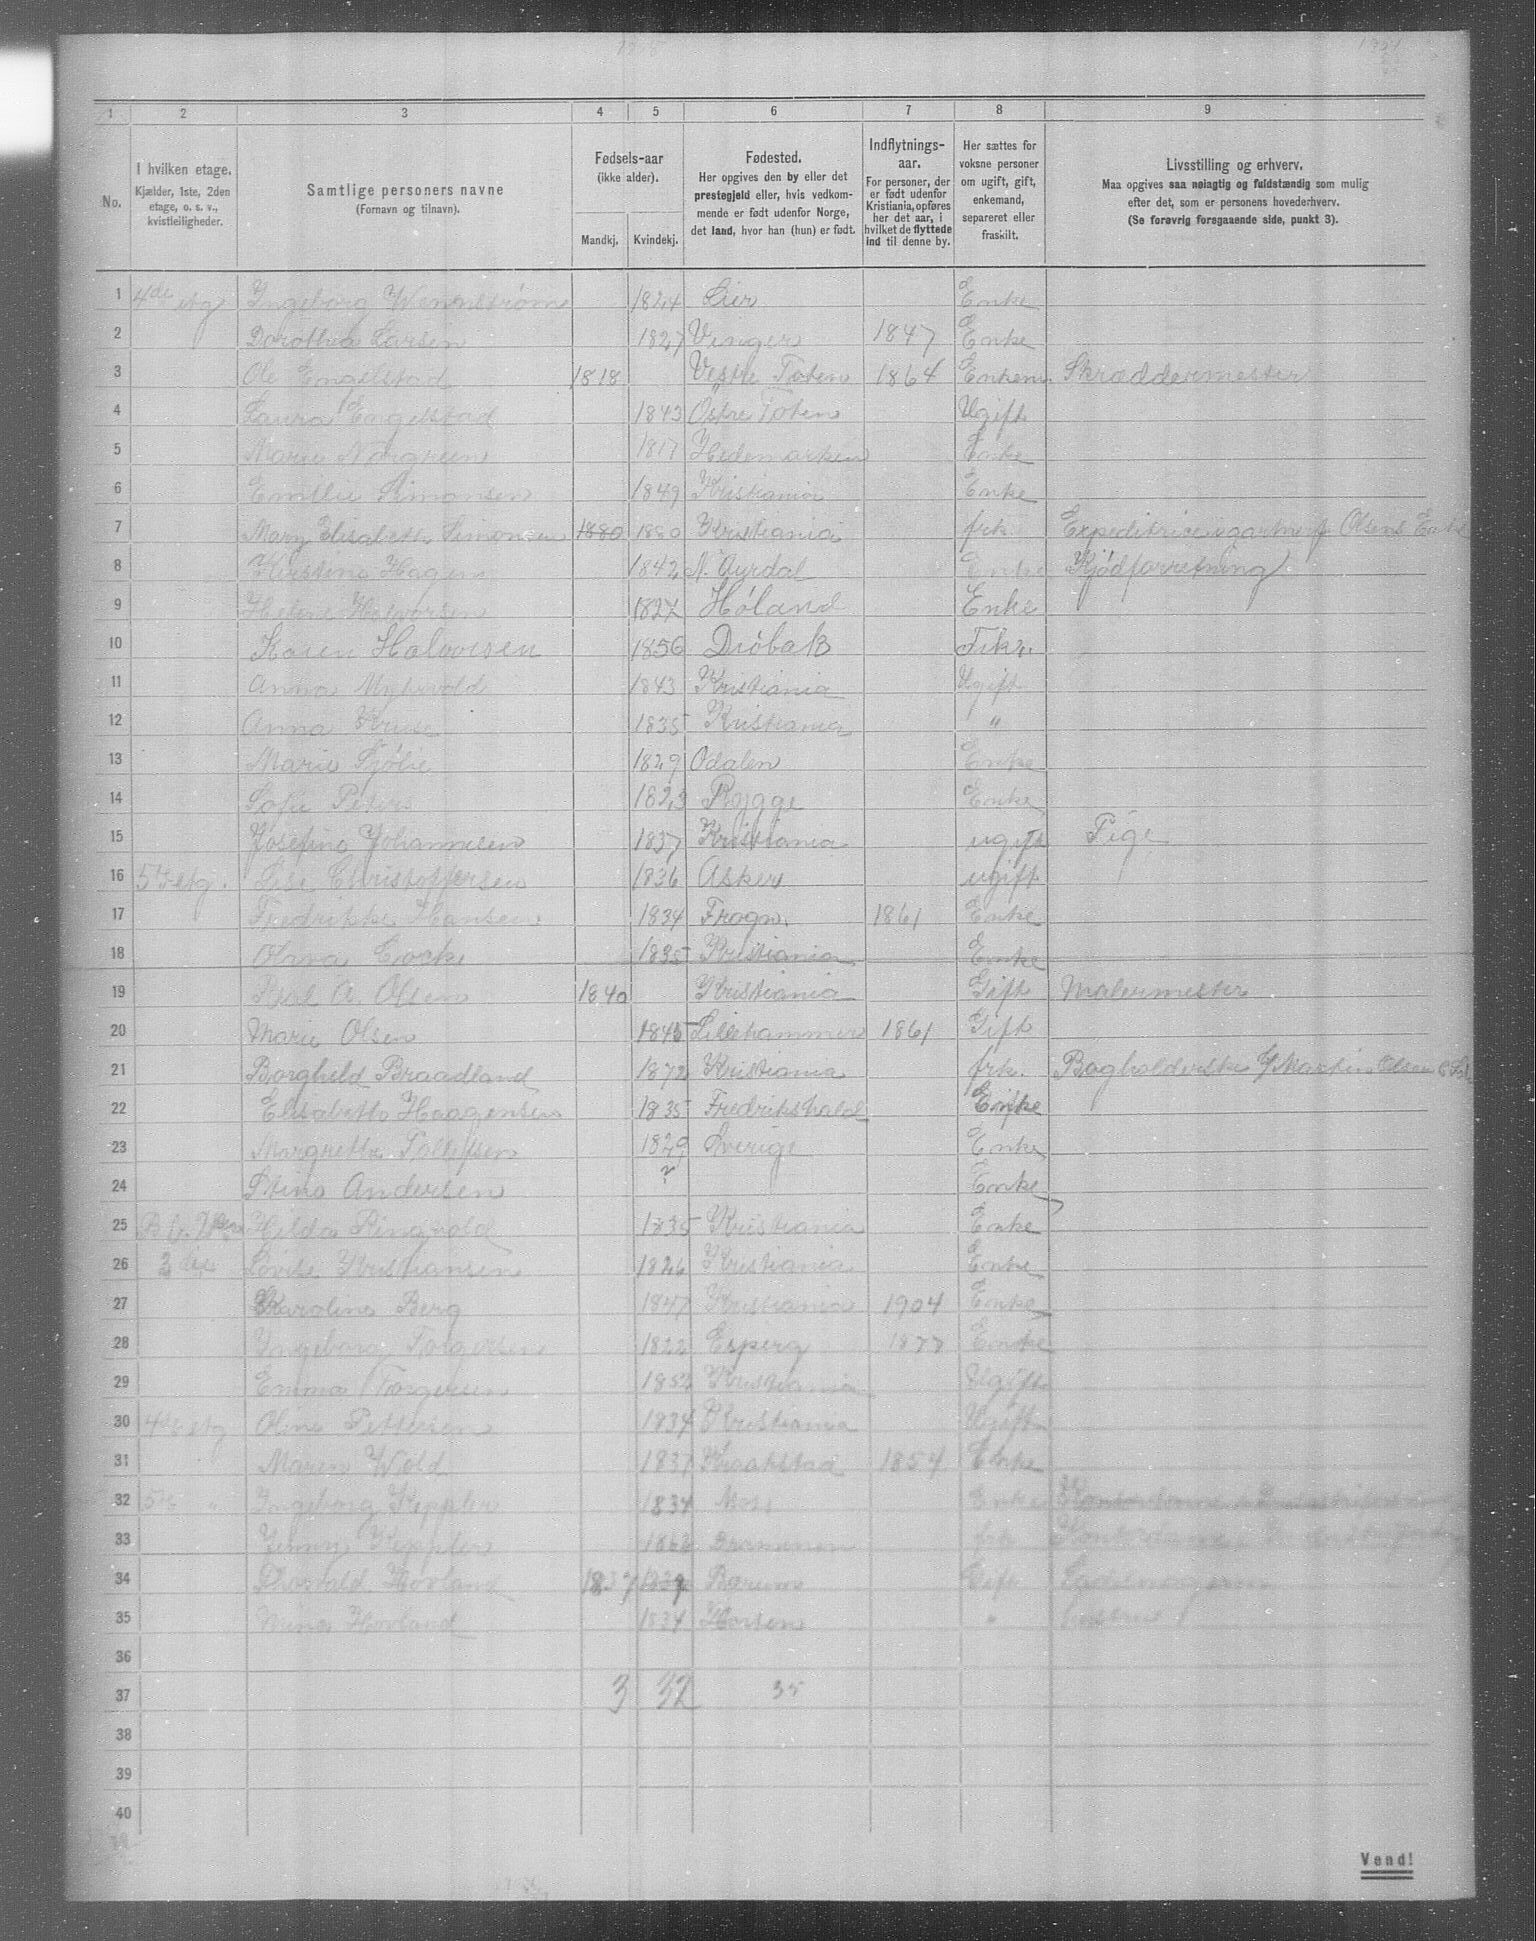 1 2 3 4 5 6 7 8 9
No.
I hvilken etage.
Kjælder, 1ste, 2den
etage, o. s. v.,
kvistleiligheder.
Samtlige personers navne
(Fornavn og tilnavn).
Fødsels-aar
(ikke alder).
Mandkj. Kvindekj.
Fødested.
Her opgives den by eller det
prestegjeld eller, hvis vedkom-
mende er født udenfor Norge,
det land, hvor han (hun) er født.
Indflytnings-
aar.
For personer, der
er født udenfor
Kristiania, opføres
her det aar, i
hvilket de flyttede
ind til denne by.
Her sættes for
voksne personer
om ugift, gift,
enkemand,
separeret eller
fraskilt.
Livsstilling og erhverv.
Maa opgives saa nøiagtig og fuldstændig som mulig
efter det, som er personens hovederhverv.
(Se forøvrig foregaaende side, punkt 3).
1 4de etg Ingeborg Wennstrøm 1824 Lier Enke
2 Dorothea Larsen 1827 Vinger 1847 Enke
3 Ole Engelstad 1818 Vestre Toten 1864 Enkem. Skræddermester
4 Laura Engelstad 1843 Østre Toten Ugift
5 Marie Norgreen 1817 Hedemarken Enke
6 Emilie Simonsen 1849 Kristiania Enke
7 Mary Elisabeth Simonsen 1880 1880 Kristiania frk. Expeditrice Olsens Enke
8 Kirstine Hagen 1842 N. Aurdal Enke Kjødforretning
9 Helene Halvorsen 1827 Høland Enke
10 Karen Halvorsen 1856 Drøbak Frkn.
11 Anna Myhrvold 1843 Kristiania Ugift
12 Anna Kruse 1835 Kristiania "
13 Marie Sjølie 1829 Odalen Enke
14 Sofie Peters 1823 Rygge Enke
15 Josefine Johannesen 1837 Kristiania ugift Pige
16 5te etg. Lise Christoffersen 1836 Asker ugift
17 Fredrikke Hansen 1834 Frogn. 1861 Enke
18 Olava Cocke 1835 Kristiania Enke
19 A. Olsen 1840 Kristiania Gift Malermester
20 Marie Olsen 1845 Lillehammer 1861 Gift
21 Borghild Braadland 1872 Kristiania frk. Bogholderske Martin Olsen
22 Elisabeth Haagensen 1835 Fredrikshald Enke
23 Margrethe Tollefsen 1829 Sverige Enke
24 Stina Andersen ? Enke
25 Hilda Ringvold 1835 Kristiania Enke
26 Lovise Kristiansen 1826 Kristiania Enke
27 Karoline Berg 1847 Kristiania 1904 Enke
28 Ingeborg Torgersen 1822 Esperg 1877 Enke
29 Emma Torgersen 1852 Kristiania Ugift
30 4de etg Oline Pettersen 1834 Kristiania Ugift
31 Maren Wold 1837 Kraakstad 1854 Enke
32 5te " Ingeborg Keppler 1834 Moss Enke
33 Jenny Keppler 1862 Drammen frk
34 Thorvald Hovland 1837 Bærum Gift
35 Nina Hovland 1834 Horten "
36
37 3 32 35
38
39
40
Vend!